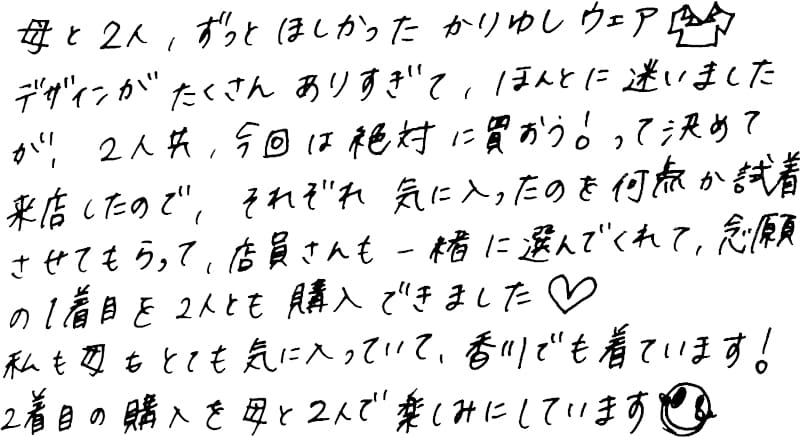 母と2人,ずっとほしかったかりゆしウェア
デザインがたくさんありすぎて,ほんとに迷いました
が,2人共,今回は絶対に買おう!って決めて
来店したので,それぞれ気に入ったのを何点か試着
させてもらって,店員さんも一緒に選んでくれて,念願
の1着目を2人とも購入できました♡
私も母もとても気に入っていて,香川でも着ています!
2着目の購入を母と2人で楽しみにしています